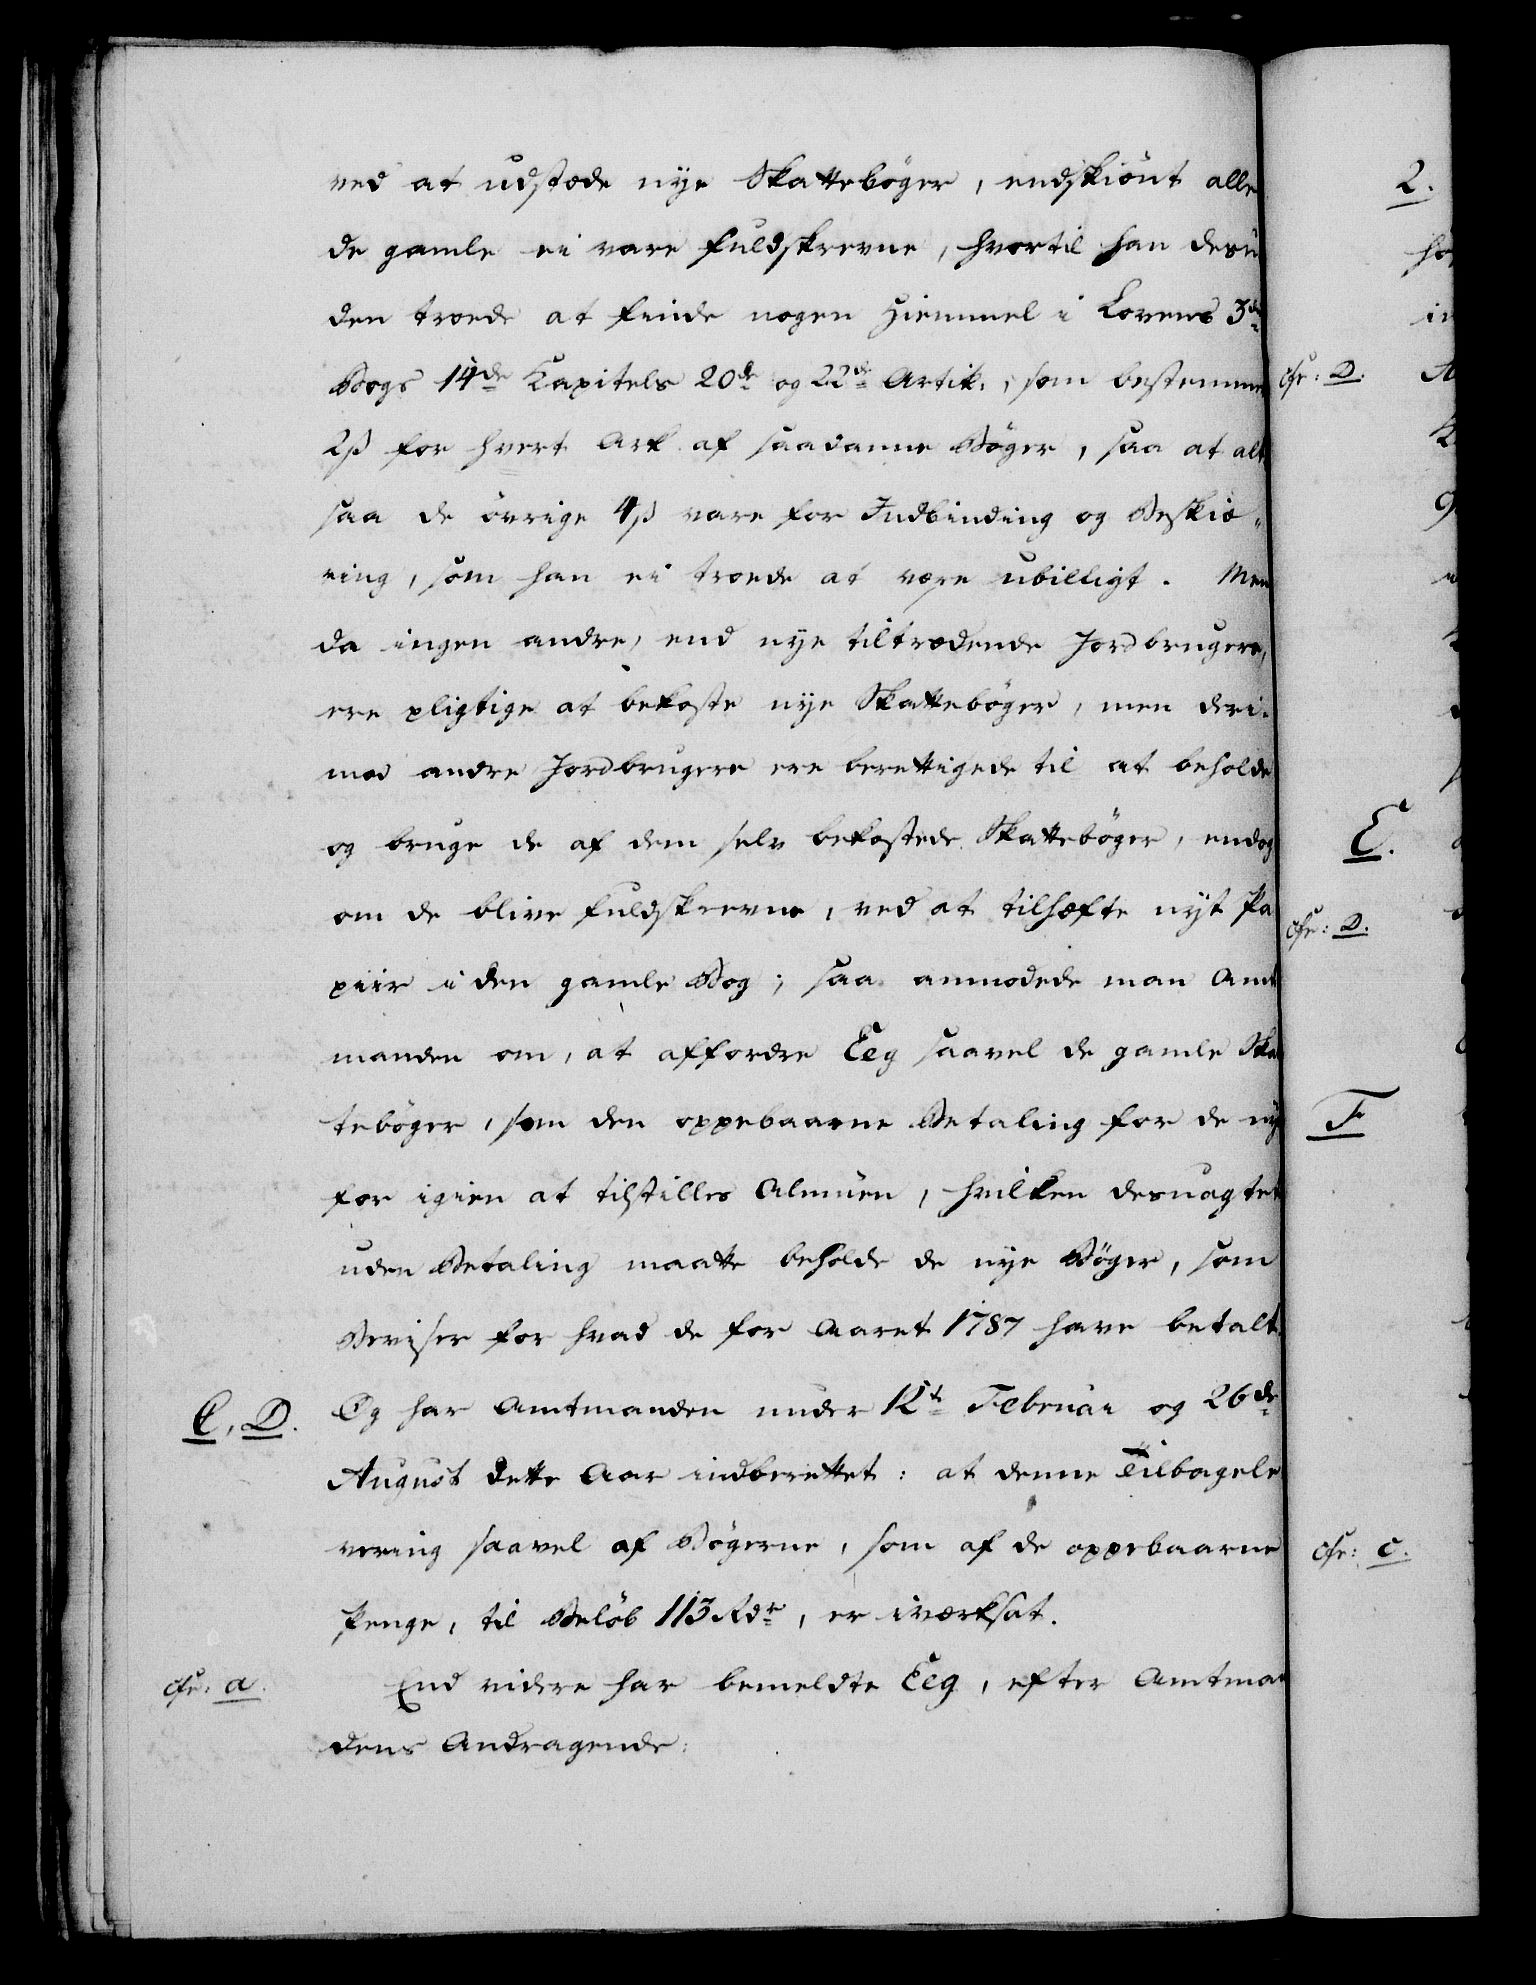 ved at udstæde nye Skattebøger, endskiönt alle
de gamle ei vare fuldskrevne, hvortil han desu
den troede at finde nogen Hiemmel i Lovens 3die
Bogs 14de Kapitels 20de og 22de Artik., som bestemmer
2ß for hvert Ark af saadanne Bøger, saa at alt
saa de øvrige 4ß vare for Indbinding og Beskiæ-
ring, som han ei troede at være ubilligt. Men
da ingen andre, end nye tiltrædende Jordbrugere,
ere pligtige at bekoste nye Skattebøger, men deri-
mod andre Jordbrugere ere berettigede til at beholde
og bruge de af dem selv bekostede Skattebøger, endog
om de blive fuldskrevne, ved at tilhæfte nyt Pa
piir i den gamle Bog; saa anmodede man Amt
manden om, at affordre Eeg saavel de gamle Skat
tebøger, som den oppebaarne Betaling for de nye
for igien at tilstilles Almuen, hvilken desuagtet
uden Betaling maatte beholde de nye Bøger, som
Beviser for hvad de for Aaret 1787 have betalt.
C, D. Og har Amtmanden under 12te Februar og 26de
August dette Aar indberettet: at denne Tilbagele
vering saavel af Bøgerne, som af de oppebaarne
Penge, til Beløb 113 Rdr, er iværksat.
cfr: a. End videre har bemeldte Eeg, efter Amtman
dens Andragende:
2.
cfr: D.
E.
cfr: D.
F
cfr: C.